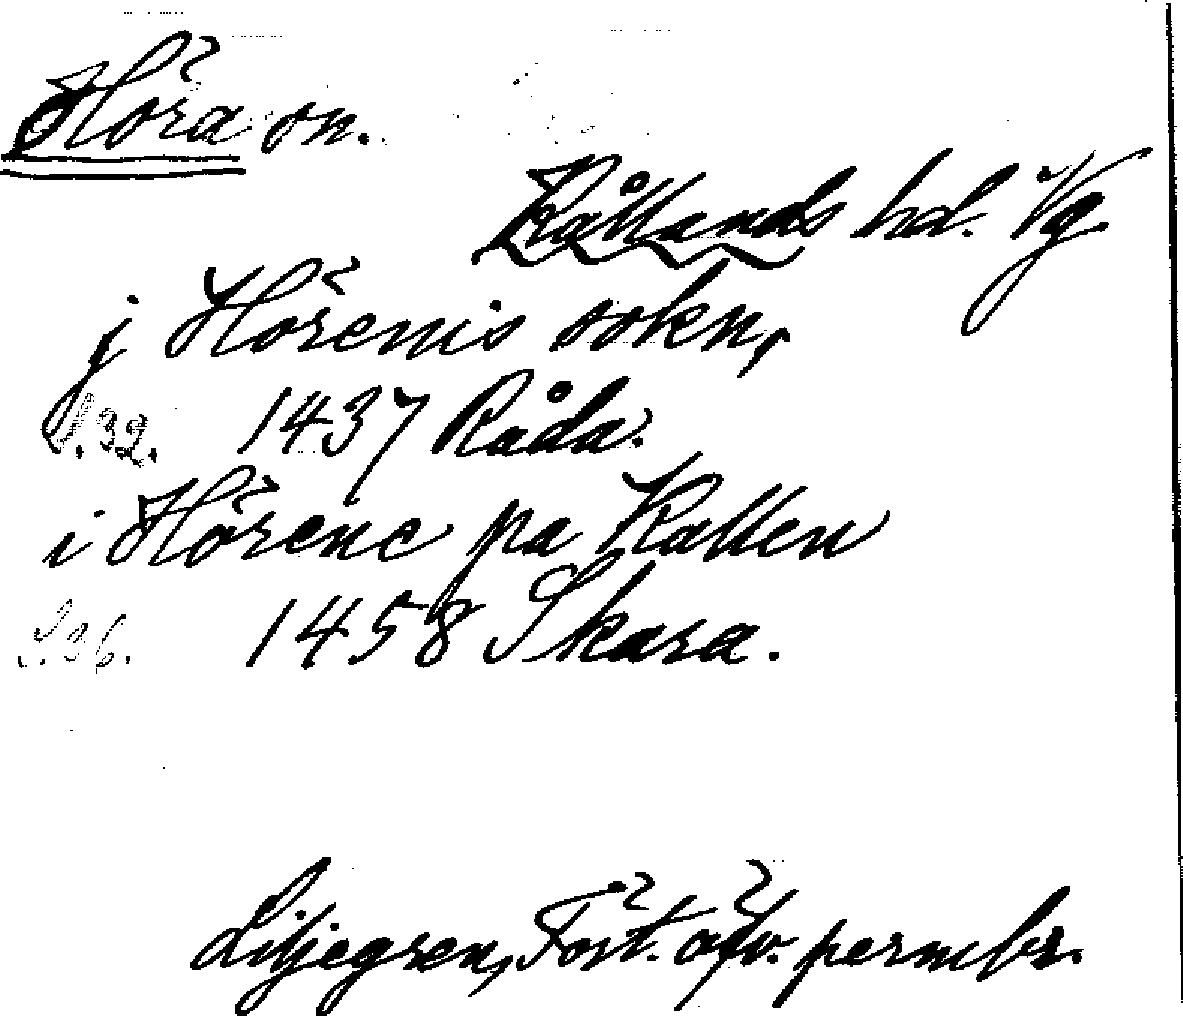 Höra sn.
Kållands hd. Vg
j Hörenis sokn,
S. 32. 1437 Råda.
i Hörene pa Kallen
S. 36. 1458 Skara.
Liljegren, Fört. öfv. permbr.